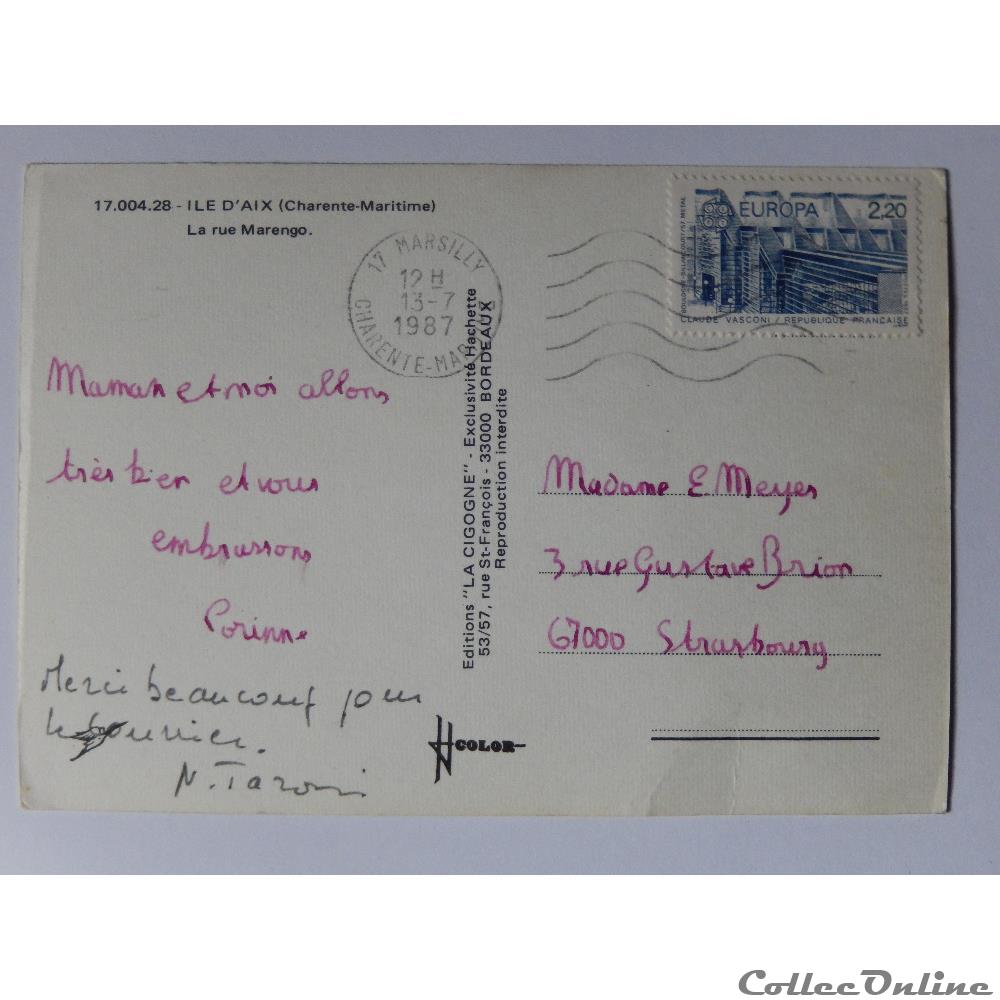 17.004.28 - ILE D'AIX (Charente-Maritime)
La rue Marengo.
17 MARSILLY
12 H
13-7
1987
CHARENTE-MAR
EUROPA 2,20
BOULOGNE-BILLANCOURT/57 METAL
CLAUDE VASCONI / RÉPUBLIQUE FRANÇAISE
Maman et moi allons
très bien et vous
embrassons
Corinne
Merci beaucoup pour
le courrier.
Editions "LA CIGOGNE" - Exclusivité Hachette
53/57, rue St-François - 33000 BORDEAUX
Reproduction interdite
COLOR
Madame E Meyer
3 rue Gustave Brion
67000 Strasbourg
CollecOnline